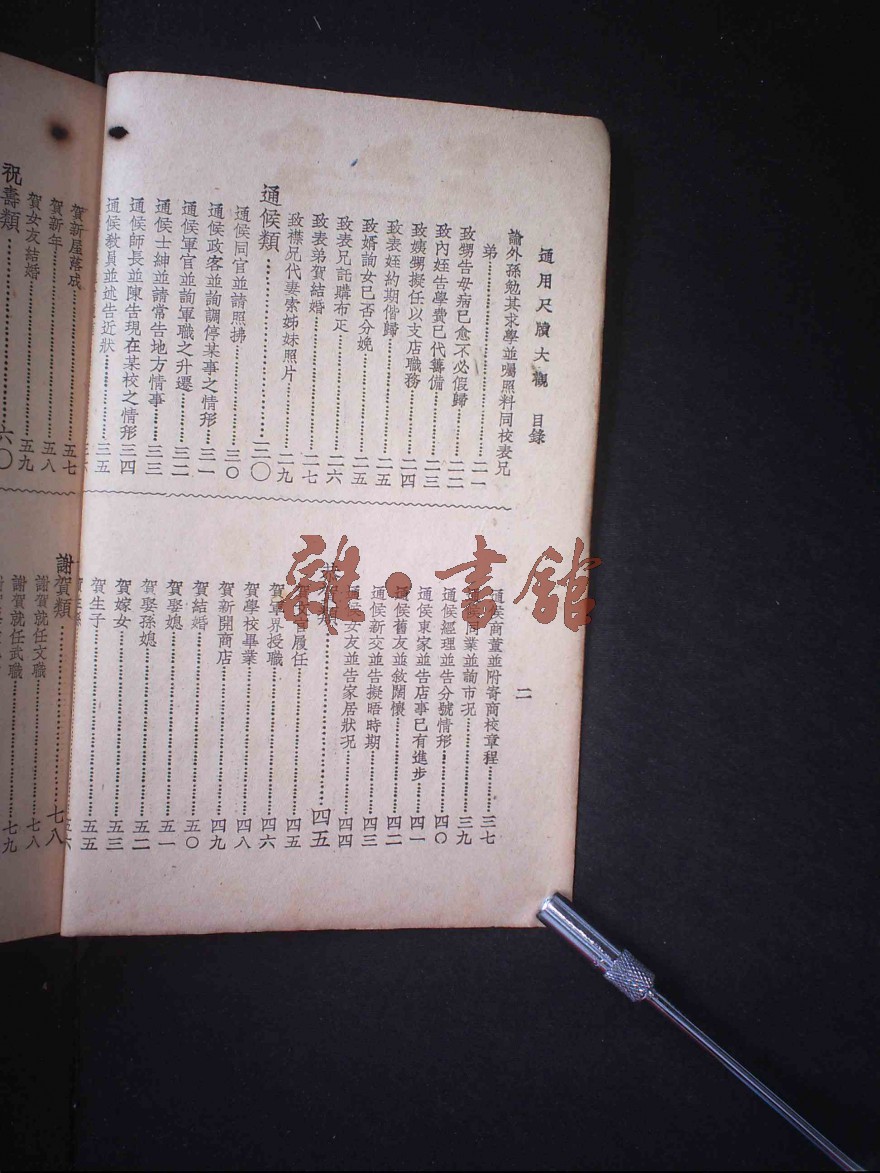 通用尺牘大觀 目錄
二
諭外孫勉其求學並囑照料同校表兄
弟……二一
致甥告母病已愈不必假歸……二二
致內姪告學費已代籌備……二三
致姨甥擬任以支店職務……二四
致表姪約期偕歸……二五
致婿詢女已否分娩……二五
致表兄託購布疋……二六
致表弟賀結婚……二七
致襟兄代妻索姊妹照片……二九
通候類……三〇
通候同官並請照拂……三〇
通候政客並詢調停某事之情形……三一
通候軍官並詢軍職之升遷……三二
通候士紳並請常告地方情事……三三
通候師長並陳告現在某校之情形……三四
通候教員並述告近狀……三五
通候商董並附寄商校章程……三七
同業並詢市况……三九
通候經理並告分號情形……四〇
通候東家並告店事已有進步……四一
通候舊友並敘闊懷……四二
通候新交並告擬晤時期……四三
通候女友並告家居狀况……四四
恭賀類……四五
賀文官履任……四五
賀軍界授職……四六
賀學校畢業……四八
賀新開商店……四九
賀結婚……五〇
賀娶媳……五一
賀娶孫媳……五二
賀嫁女……五三
賀生子……五五
五六
賀新屋落成……五七
賀新年……五八
賀女友結婚……五九
祝壽類……六〇
謝賀類……七八
謝賀就任文職……七八
謝賀就任武職……七九
雜·書館